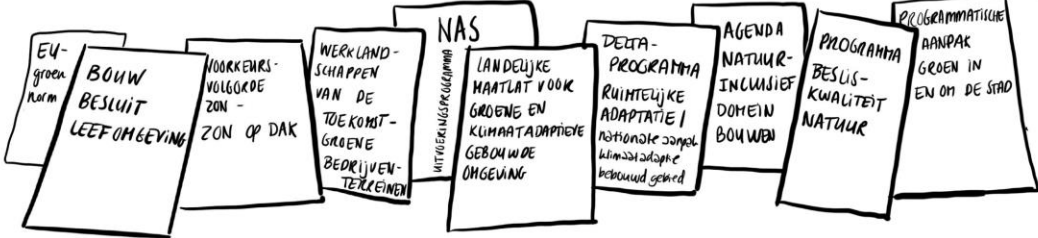 EU-
groen
norm
BOUW
BESLUIT
LEEFOMGEVING
VOORKEURS-
VOLGORDE
ZON -
ZON OP DAK
WERKLAND-
SCHAPPEN
VAN DE
TOEKOMST-
GROENE
BEDRIJVEN-
TERREINEN
NAS
UITVOERINGSPROGRAMMA
LANDELIJKE
MAATLAT VOOR
GROENE EN
KLIMAATADAPTIEVE
GEBOUWDE
OMGEVING
DELTA-
PROGRAMMA
RUIMTELIJKE
ADAPTATIE /
nationale aanpak
klimaatadaptie
bebouwd gebied
AGENDA
NATUUR-
INCLUSIEF
DOMEIN
BOUWEN
PROGRAMMA
BESLIS-
KWALITEIT
NATUUR
PROGRAMMATISCHE
AANPAK
GROEN IN
EN OM DE STAD